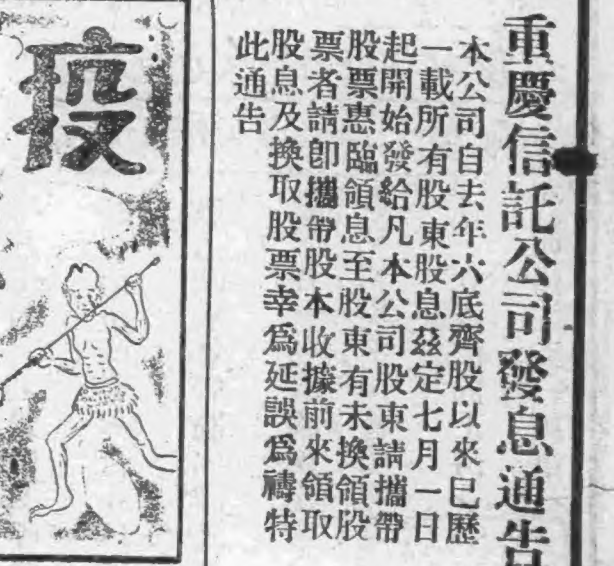 重慶信託公司發息通告
本公司自去年六底齊股以來已歷
一載所有股東股息茲定七月一日
起開始發給凡本公司股東請攜帶
股票惠臨領息至股東有未換領股
票者請卽攜帶股本收據前來領取
股息及換取股票幸爲延誤爲禱特
此通告
疫